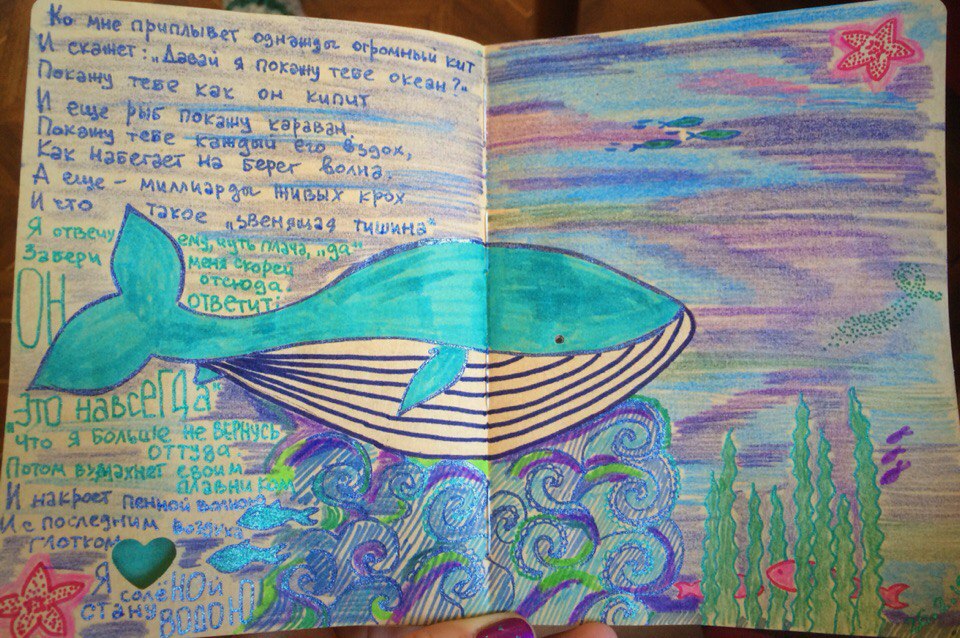 Ко мне приплывет однажды огромный кит
И скажет: „Давай я покажу тебе океан?"
Покажу тебе как он кипит
И еще рыб покажу караван.
Покажу тебе каждый его вздох,
Как набегает на берег волна,
А еще - миллиарды живых крох
И что такое „звенящая тишина"
Я отвечу ему, чуть плача, „да"
Забери меня скорей
отсюда.
Он ответит:
„Это навсегда"
Что я больше не вернусь
оттуда.
Потом взмахнет своим
плавником
И накроет пенной волной
И с последним воздуха
глотком
Я солёной
стану водою